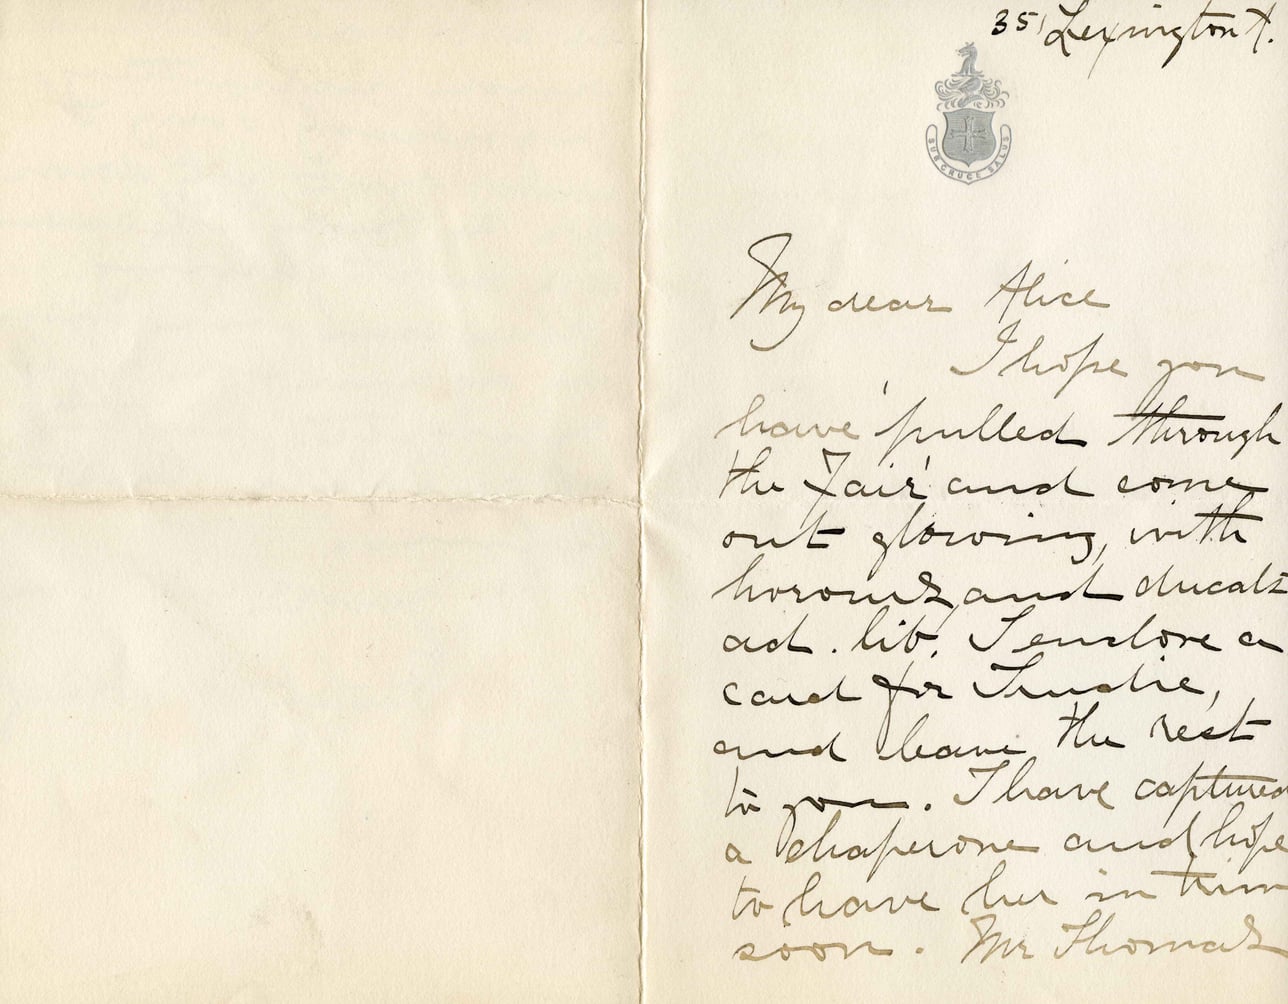 351 Lexington A.
SUB CRUCE SALUS
My dear Alice
I hope you
have 'pulled through
the Fair' and come
out glowing, with
honours, and ducats
ad. lib. I enclose a
card for Trudie,
and leave the rest
to you. I have captured
a chaperone and hope
to have her in trim
soon. Mr Thomas